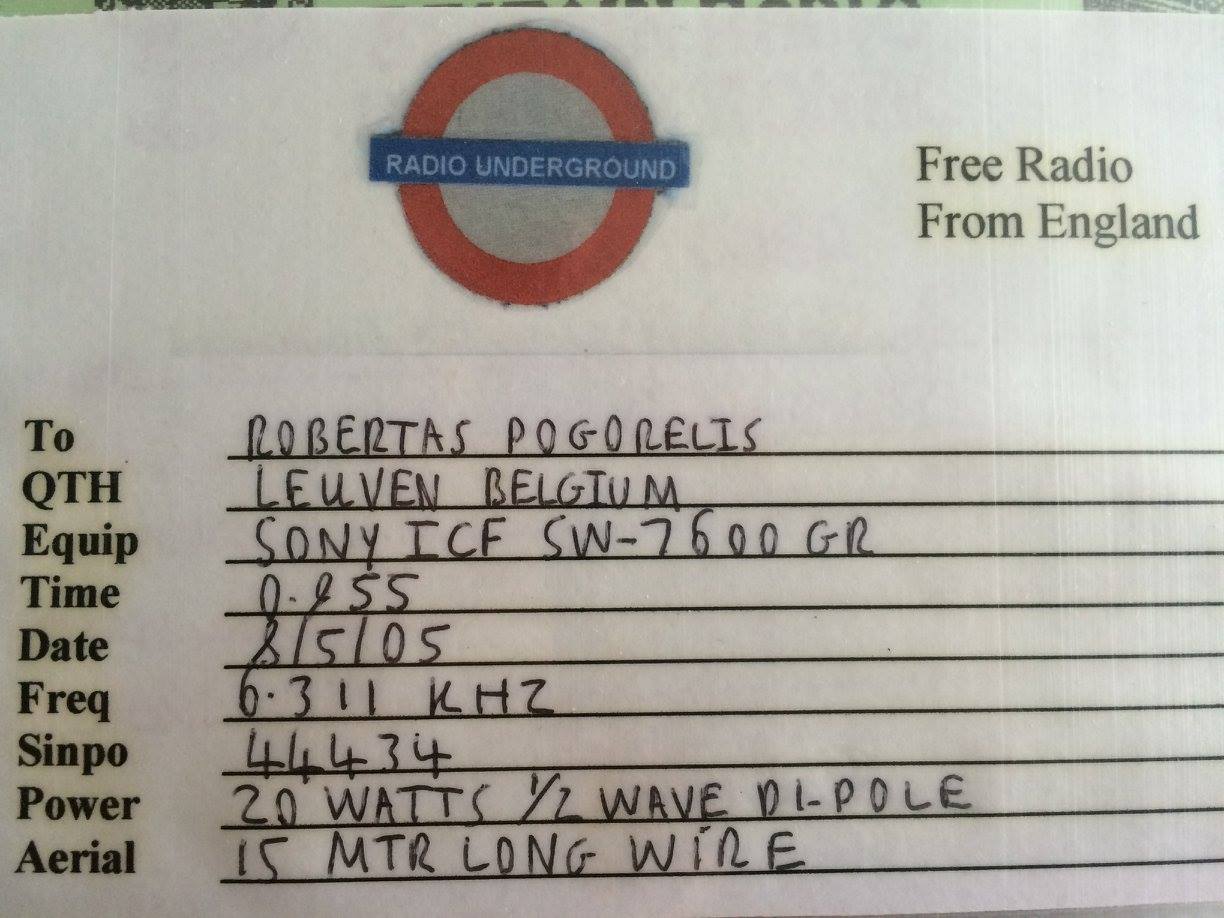 RADIO UNDERGROUND
Free Radio
From England
To ROBERTAS POGORELIS
QTH LEUVEN BELGIUM
Equip SONY ICF SW-7600 GR
Time
Date 8/5/05
Freq 6.311 KHZ
Sinpo 44434
Power 20 WATTS 1/2 WAVE DI-POLE
Aerial 15 MTR LONG WIRE